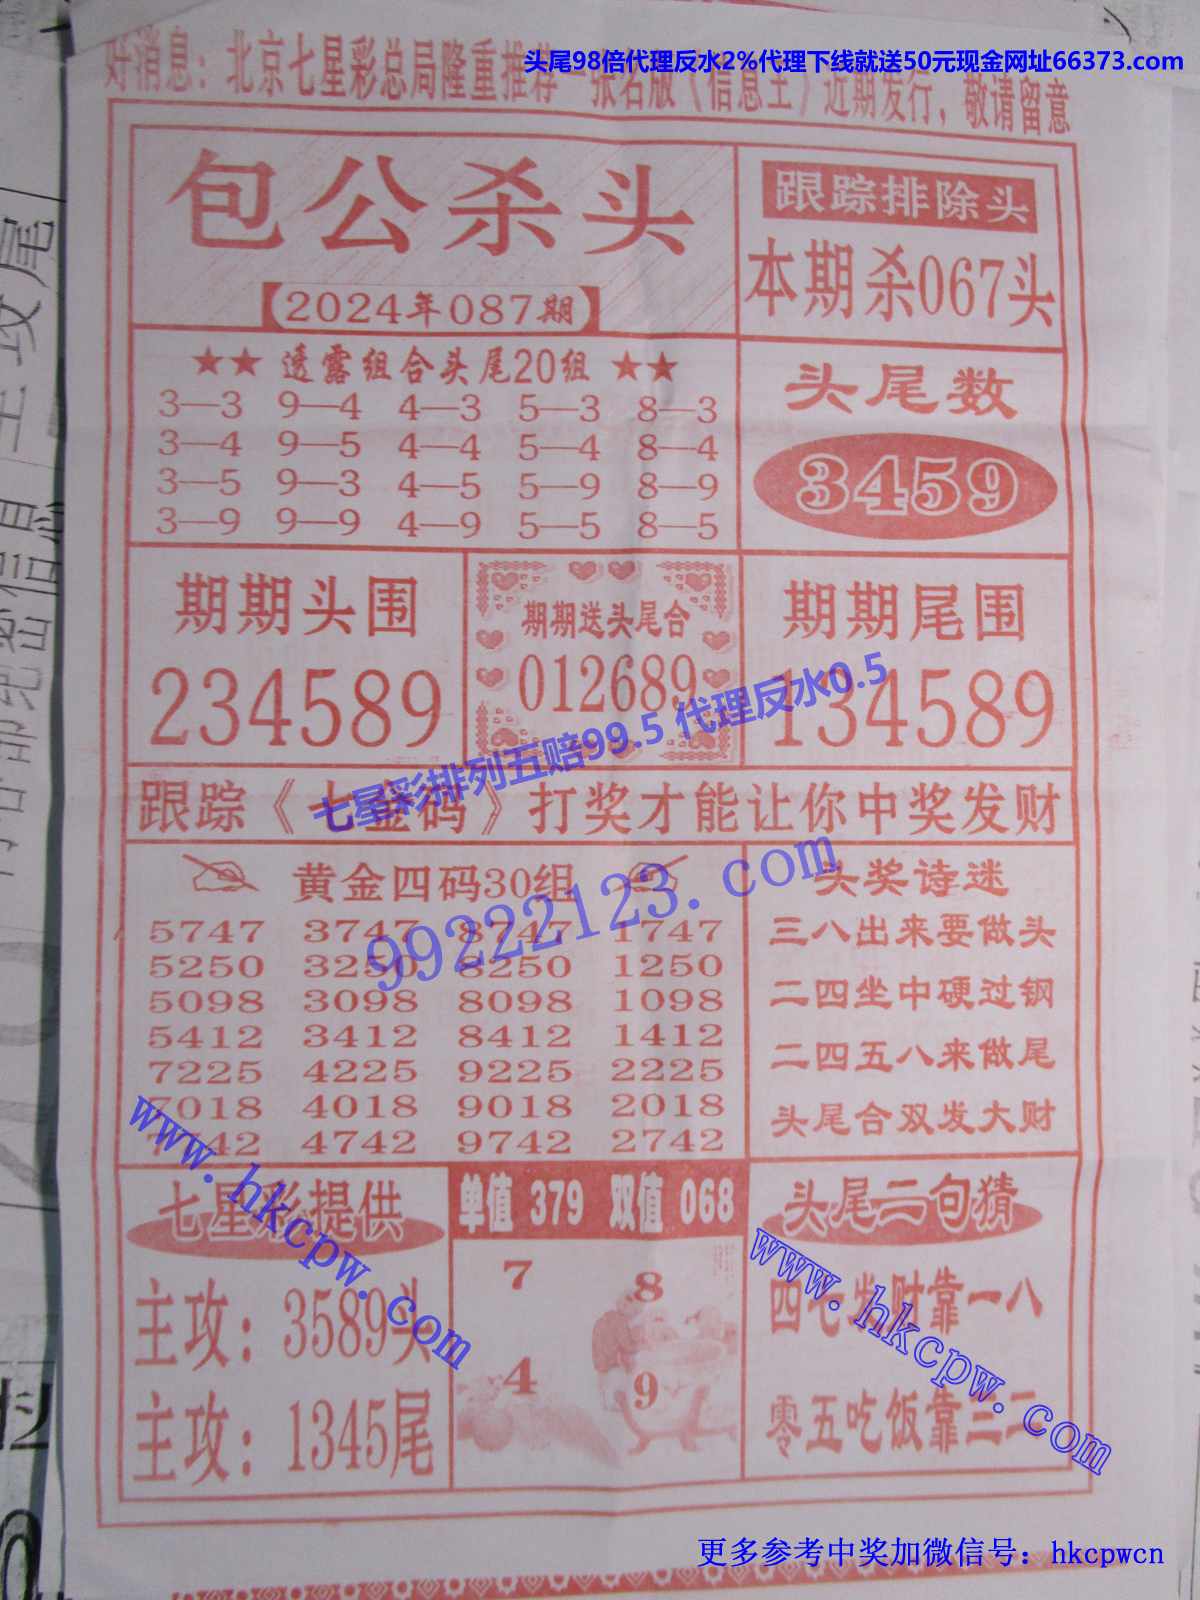 头尾98倍代理反水2%代理下线就送50元现金网址66373.com
好消息：北京七星彩总局隆重推荐一张名版《信息王》近期发行，敬请留意
包公杀头
【2024年087期】
跟踪排除头
本期杀067头
★★ 透露组合头尾20组 ★★
3—3 9—4 4—3 5—3 8—3
3—4 9—5 4—4 5—4 8—4
3—5 9—3 4—5 5—9 8—9
3—9 9—9 4—9 5—5 8—5
头尾数
3459
期期头围
234589
期期送头尾合
012689
期期尾围
134589
七星彩排列五赔99.5 代理反水0.5
跟踪《七金码》打奖才能让你中奖发财
黄金四码30组
5747 3747 8747 1747
5250 3250 8250 1250
5098 3098 8098 1098
5412 3412 8412 1412
7225 4225 9225 2225
7018 4018 9018 2018
7742 4742 9742 2742
99222123.com
头奖诗迷
三八出来要做头
二四坐中硬过钢
二四五八来做尾
头尾合双发大财
www.hkcpw.com
七星彩提供
主攻：3589头
主攻：1345尾
单值 379 双值 068
7 8
4 9
头尾二句猜
四七发财靠一八
零五吃饭靠三二
www.hkcpw.com
更多参考中奖加微信号：hkcpwcn
主攻尾